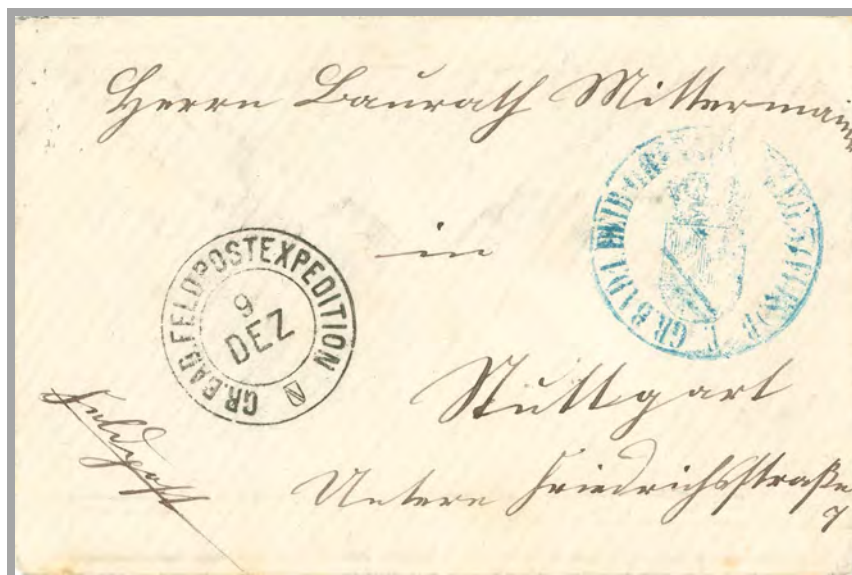 Herrn Baurath Mittermaier
in
GR.BAD.FELDPOSTEXPEDITION
9
DEZ
Stuttgart
Feldpost
Untere Friedrichsstraße
GR. BAD. LEIB